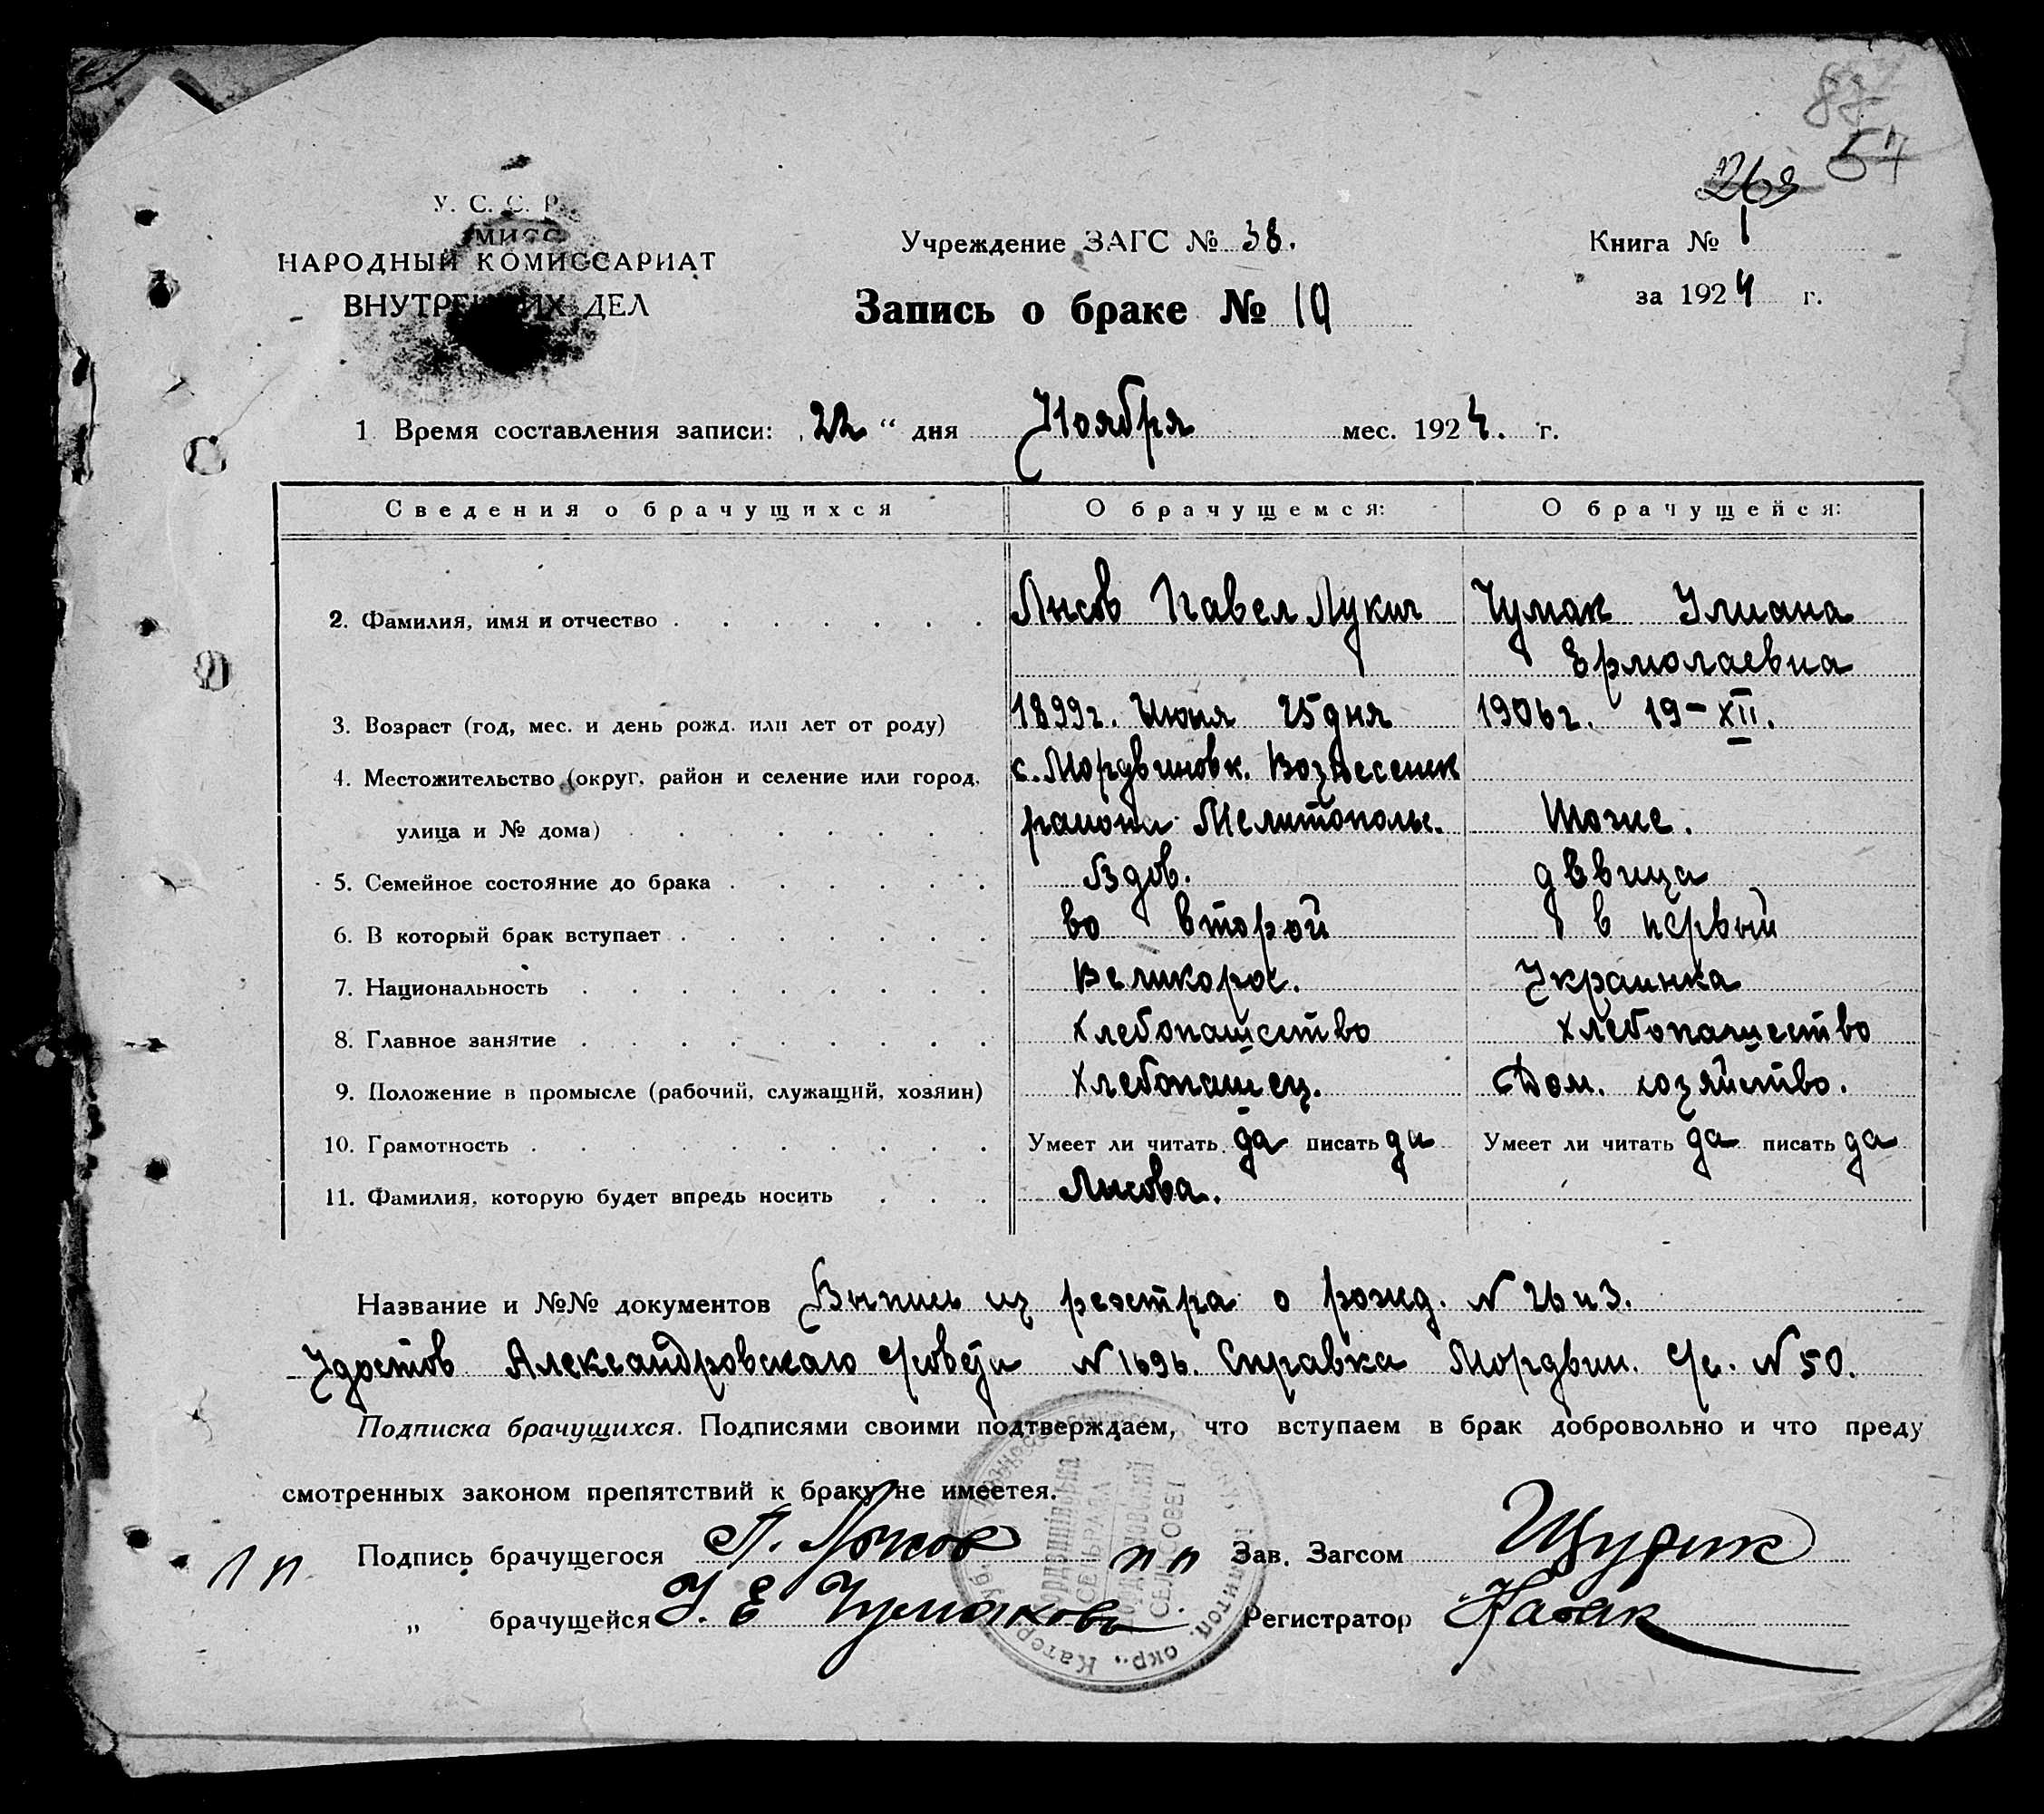 У. С. С. Р.
НАРОДНЫЙ КОМИССАРИАТ
ВНУТРЕННИХ ДЕЛ
Учреждение ЗАГС № 38.
Запись о браке № 19
57
269
Книга № 1
за 1924 г.
1 Время составления записи: „22“ дня Ноября мес. 1924. г.
Сведения о брачущихся О брачущемся: О брачущейся:
2. Фамилия, имя и отчество Лысов Павел Лукич Чумак Улиана
Ермолаевна
3. Возраст (год, мес. и день рожд. или лет от роду) 1899г. Июня 25 дня 1906г. 19-XII.
4. Местожительство (округ, район и селение или город, с. Мордвиновк. Вознесенск
улица и № дома) района Мелитопольс. Тоже.
5. Семейное состояние до брака Вдов. дѣвица
6. В который брак вступает во второй в первый
7. Национальность Великорос. Украинка
8. Главное занятие хлебопашество хлебопашество
9. Положение в промысле (рабочий, служащий, хозяин) хлебопашец. Дом. хозяйство.
10. Грамотность Умеет ли читать да писать да Умеет ли читать да писать да
11. Фамилия, которую будет впредь носить Лысова.
Название и №№ документов Выпись из реэстра о рожд. N 26 и 3.
Удостов Александровскаго с/совета N 1696. Справка Мордвин. с/с. N 50.
Подписка брачущихся. Подписями своими подтверждаем, что вступаем в брак добровольно и что преду
смотренных законом препятствий к браку не имеется.
Подпись брачущегося П. Лысов пп Зав. Загсом Щурик
„ брачущейся У. Е Чумакова Регистратор
СЕЛЬРАДА
СЕЛЬСОВЕТ